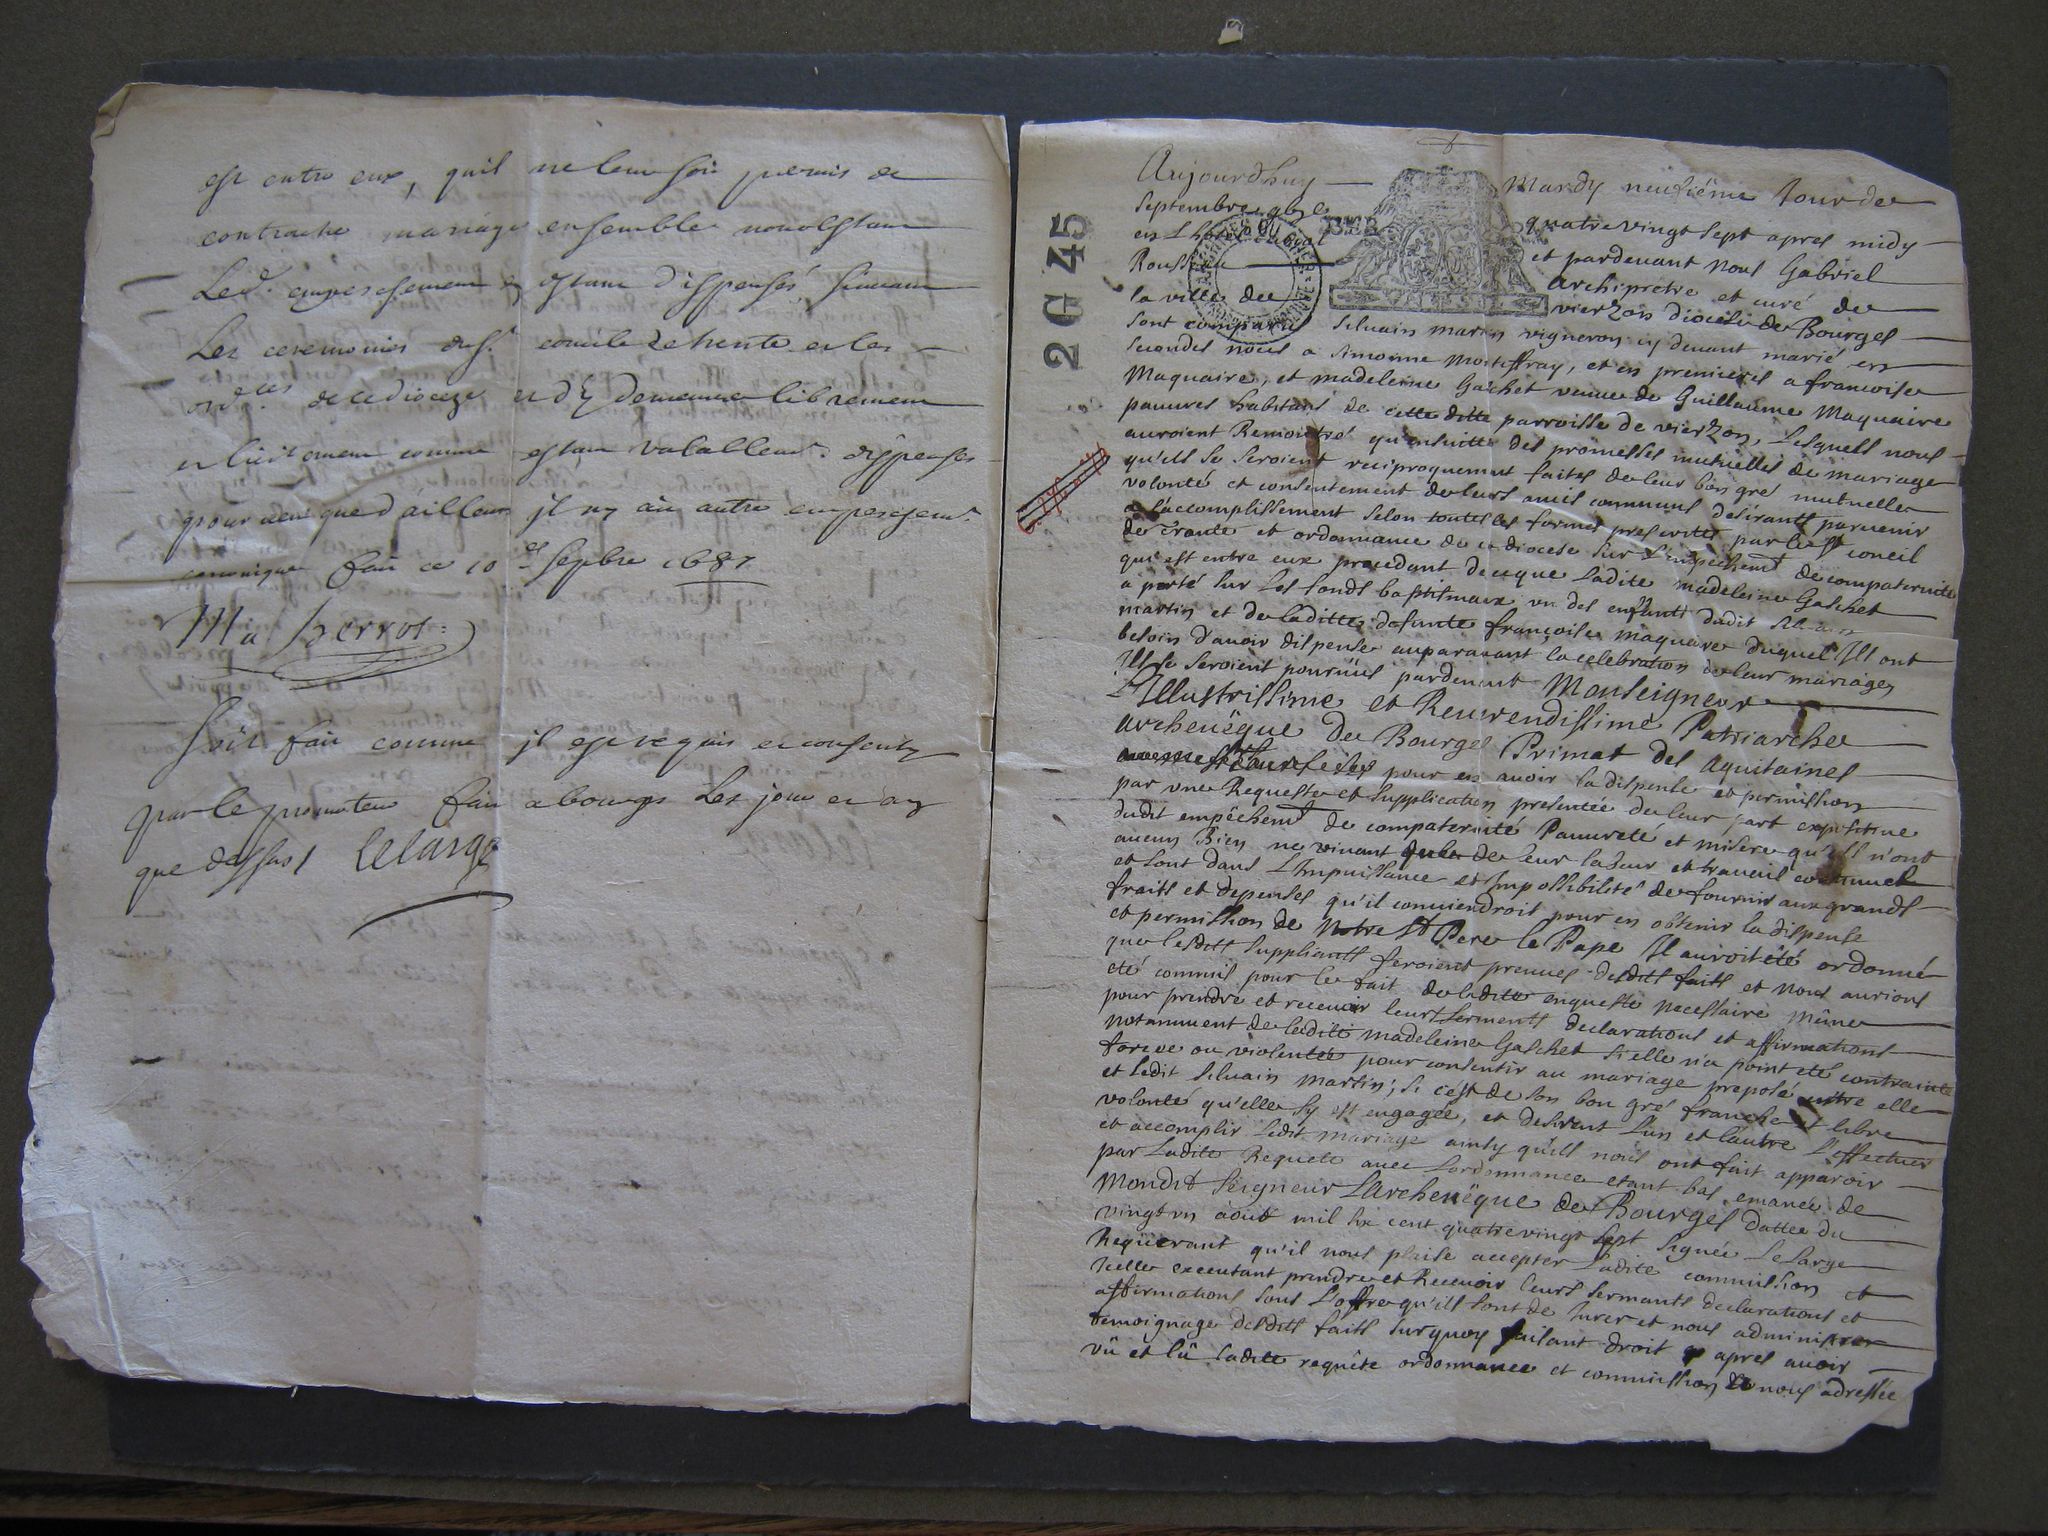 est entre eux, quil ne leur soit permis de
contracter mariage ensemble nonobstant
Led. empeschement en estant dispensés suivant
Les ceremonies du st. concile de trente et les
ordces de ce dioceze et d'y demeurer librement
et licitement comme estant valablemt. dispensés
pourveu que d'ailleurs il ny ait autre empeschemt.
canonique fait ce 10e septbre 1687
Ma perrot
Soit fait comme il est requis et consenty
par le promoteur fait a bourges Les jour et an
que dessus Lelarge
2 G 45
Aujourdhuy Mardy neufiême Jour de
Septembre quatre vingt sept apres midy
en L'hotel et pardevant Nous Gabriel
Rousseau Archiprêtre et curé de
la ville de vierzon diocese de Bourges
Sont comparus Silvain martin vigneron cy devant marié en
secondes noces a Simonne Montiffray, et en premieres a francoise
Maquaire, et madeleine Gaschet veuve de Guillaume Maquaire
pauvres habitans de cette ditte parroisse de vierzon, Lesquels nous
auroient Remontré qu'ensuitte des promesses mutuelles de mariage
qu'ils se seroient reciproquement faites de leur bon gré mutuelle
volonté et consentement de leurs amis communs desirants parvenir
a l'accomplissement selon toutes les formes prescrites par le St concil
de Trante et ordonnance de ce diocese sur L'empêchemt de compaternité
qui est entre eux procedant de ce que Ladite madeleine Gaschet
a porté sur Les fonds baptismaux un des enfants dudit Silvain
martin et de laditte defunte françoise maquaire duquel Ils ont
besoin d'avoir dispense auparavant la celebration de leur mariage
Ils se seroient pourvus pardevant Monseigneur
L'Illustrissime et Reverendissime Patriarche
archevêque De Bourges Primat des Aquitaines
pour en avoir la dispense et permission
par une Requeste et supplication presentée de leur part expositive
dudit empêchemt de compaternité Pauvreté et misere qu'ils n'ont
aucun Bien ne vivant que de leur labeur et traveil continuel
et sont dans L'Impuissance et Impossibilité de fournir aux grands
fraits et depenses qu'il conviendroit pour en obtenir la dispense
et permission de Notre St Pere le Pape Il auroit été ordonné
que lesdits suppliants feroient preuves desdits faits et Nous aurions
eté commis pour le fait de ladite enqueste necessaire même
pour prendre et recevoir leurs serments declarations et affirmations
notamment de ladite madeleine Gaschet si elle n'a point eté contrainte
forcée ou violentée pour consentir au mariage proposé entre elle
et Ledit Silvain Martin; si c'est de son bon gré franche et libre
volonté qu'elle sy est engagée, et desirent L'un et L'autre L'effectuer
et accomplir Ledit mariage ainsy qu'ils nous ont fait apparoir
par Ladite Requete avec L'ordonnance etant bas emanée de
Mondit Seigneur L'Archevêque de Bourges Dattée du
vingt un août mil six cent quatrevingt sept signée Le Large
Requerant qu'il nous plaise accepter Ladite commission et
Icelle executant prendre et Recevoir leurs sermants declarations et
affirmations sous L'offre qu'ils font de Jurer et nous administrer
temoignage desdits faits surquoy faisant droit apres avoir
vû et lû Ladite requête ordonnance et commission a nous adressée